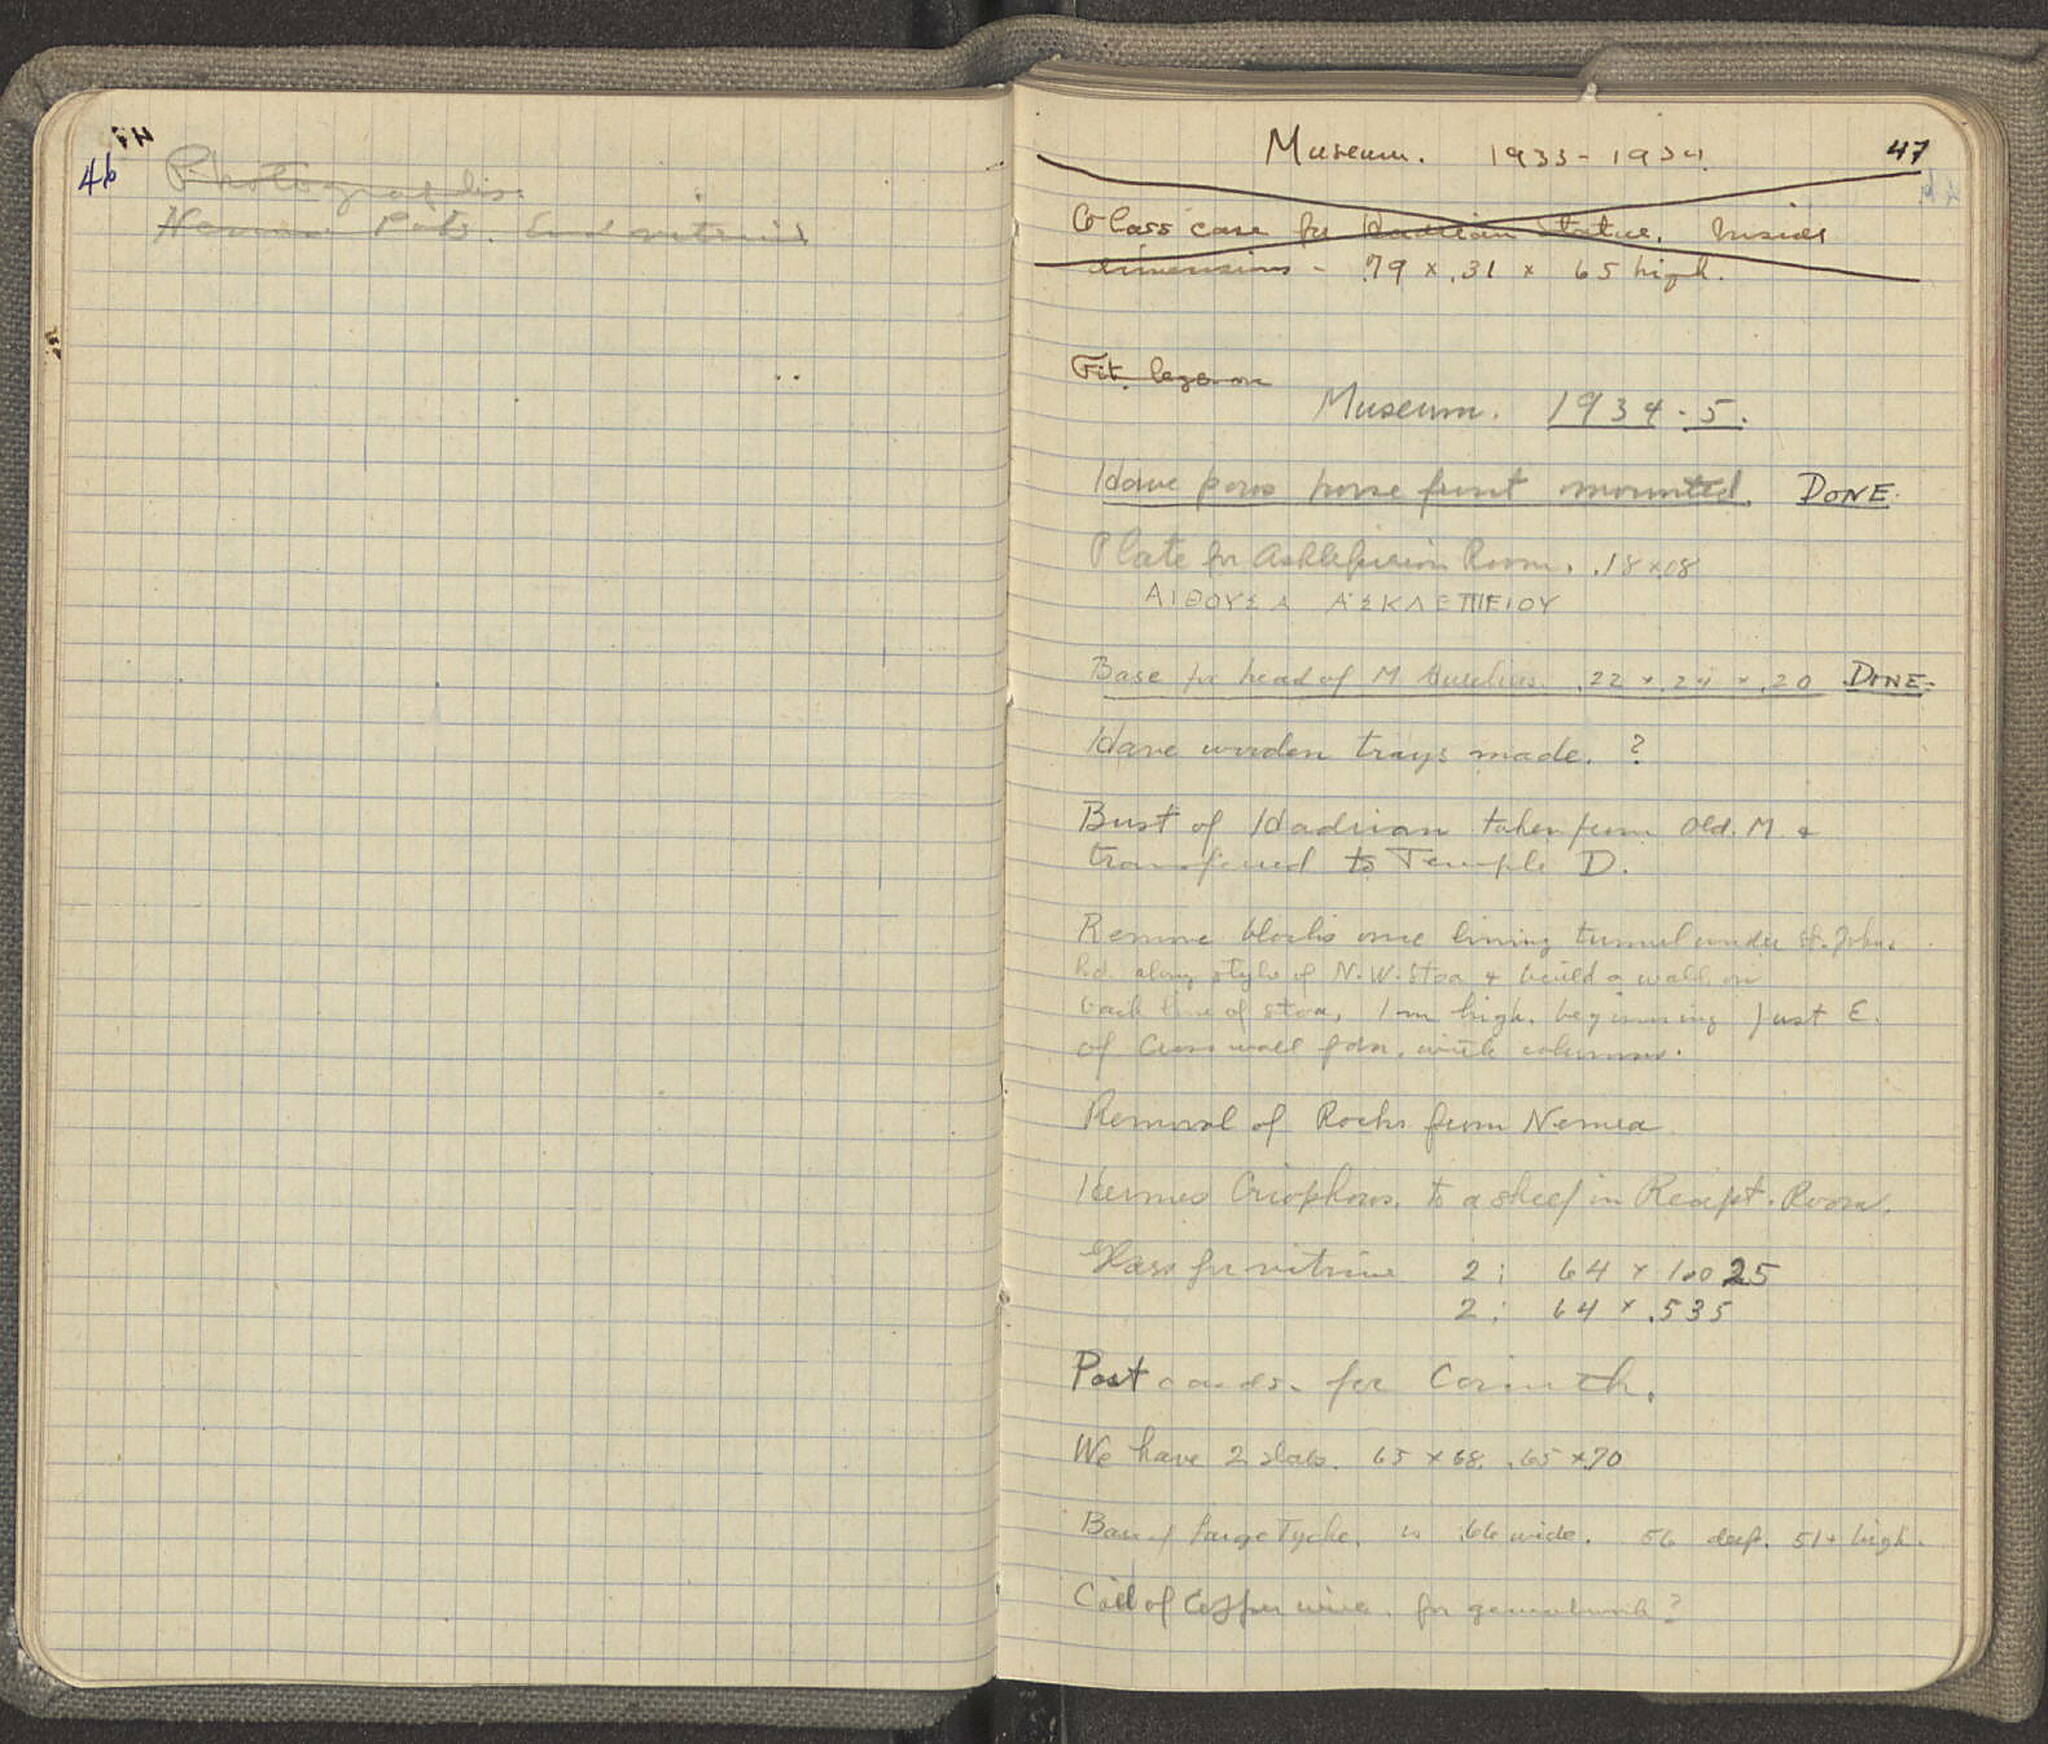 46
Photographs.
Nemean Pots. End vitrine
47
Museum. 1933-1934
Glass case for Hadrian statue. Inside
dimensions - .79 x .31 x 65 high.
Fit legs on
Museum. 1934-5.
Have poros horse front mounted. DONE.
Plate for Asklepieion Room. .18 x .08
ΑΙΘΟΥΣΑ ΑΣΚΛΕΠΙΕΙΟΥ
Base for head of M. Aurelius .22 x .24 x .20 DONE
Have wooden trays made. ?
Bust of Hadrian taken from Old. M. &
transferred to Temple D.
Remove blocks once lining tunnel under St. John.
along stylo of N.W. Stoa & build a wall on
back line of stoa, 1 m high, beginning just E.
of Cross wall fdn. with columns.
Removal of Rocks from Nemea
Hermes Criophoros. to a shelf in Recept. Room.
Glass for vitrine 2: 64 x 1.0025
2: 64 x .535
Post cards. for Corinth.
We have 2 slabs. 65 x 68. .65 x .70
Base of large Tyche. is .66 wide. 56 deep. 51+ high.
Coil of Copper wire. for general work?